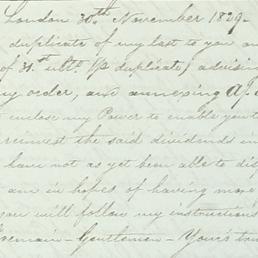 London 30th November 1829
duplicate of my last to you
of 31st ulto (p duplicate) advising
my order, and annexing a/c
enclose my Power to enable you to
reinvest the said dividends in
have not as yet been able to
am in hopes of having more
you will follow my instructions
remain – Gentlemen – Yours